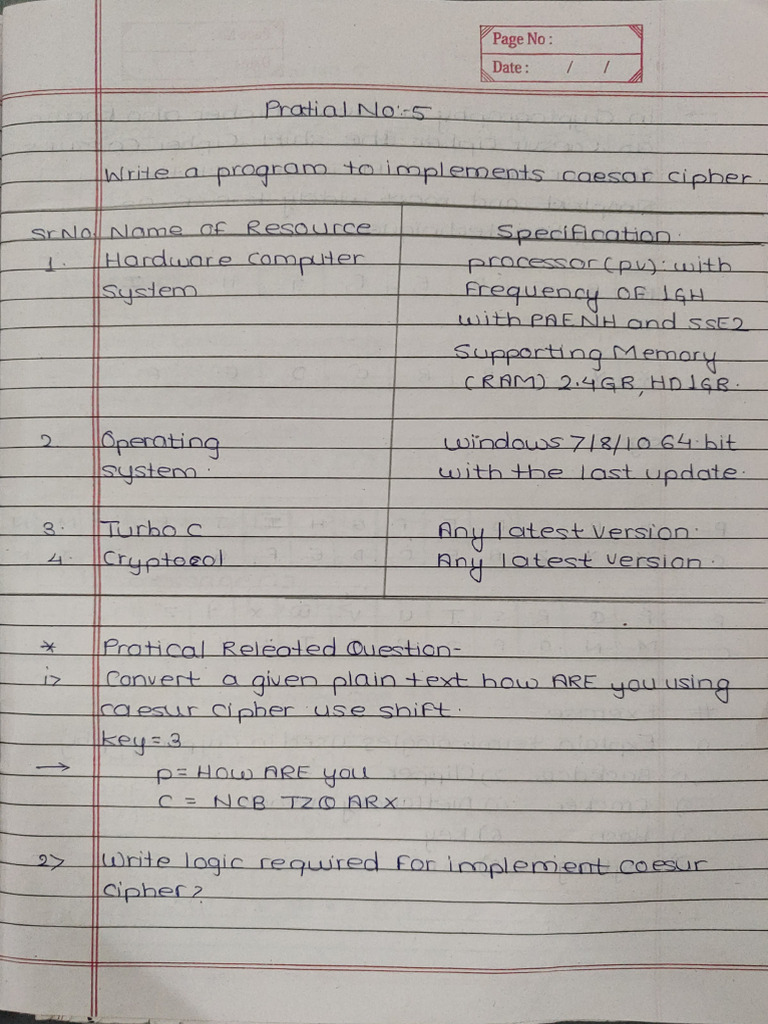 Page No :
Date : / /
Pratial No:-5
Write a program to implements caesar cipher.
Sr.No. Name of Resource Specification.
1. Hardware computer processor (pv). with
system Frequency OF 1GH
with PAENH and SSE2
Supporting Memory
(RAM) 2.4GB, HD1GB.
2. Operating windows 7/8/10 64-bit
system. with the last update.
3. Turbo C Any latest version.
4. Cryptocol Any latest version.
* Pratical Releated Question-
i> Convert a given plain text how ARE you using
caesur cipher use shift.
key = 3
→ p = HOW ARE you
C = NCB TZQ ARX
2> Write logic required for implement caesur
cipher?